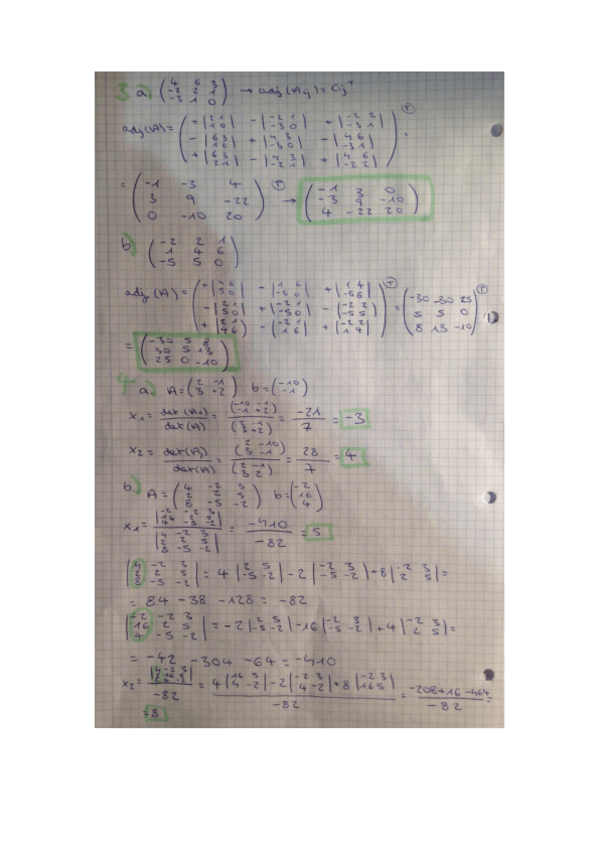 3 a) (4 6 3 / -2 2 1 / -3 1 0) → adj(Aij) = Cij⁺
adj(A) = (+|2 1 / 1 0| -|-2 1 / -3 0| +|-2 2 / -3 1| / -|6 3 / 1 0| +|4 3 / -3 0| -|4 6 / -3 1| / +|6 3 / 2 1| -|4 3 / -2 1| +|4 6 / -2 2|)ᵀ =
= (-1 -3 4 / 3 9 -22 / 0 -10 20)ᵀ → (-1 3 0 / -3 9 -10 / 4 -22 20)
b) (-2 2 1 / 1 4 6 / -5 5 0)
adj(A) = (+|4 6 / 5 0| -|1 6 / -5 0| +|1 4 / -5 5| / -|2 1 / 5 0| +|-2 1 / -5 0| -|-2 2 / -5 5| / +|2 1 / 4 6| -|-2 1 / 1 6| +|-2 2 / 1 4|)ᵀ = (-30 -30 25 / 5 5 0 / 8 13 -10)ᵀ
= (-30 5 8 / 30 5 13 / 25 0 -10)
4 a) A = (2 -1 / 3 +2) b = (-10 / -1)
x1 = det(A1) / det(A) = (-10 -1 / -1 +2) / (2 -1 / 3 +2) = -21 / 7 = -3
x2 = det(A2) / det(A) = (2 -10 / 3 -1) / (2 -1 / 3 2) = 28 / 7 = 4
b) A = (4 -2 3 / 2 2 5 / 8 -5 -2) b = (-2 / 16 / 4)
x1 = |-2 -2 3 / 16 2 5 / 4 -5 -2| / |4 -2 3 / 2 2 5 / 8 -5 -2| = -410 / -82 = 5
|4 -2 3 / 2 2 5 / 8 -5 -2| = 4|2 5 / -5 -2| -2|-2 3 / -5 -2| +8|-2 3 / 2 5| =
= 84 -38 -128 = -82
|-2 -2 3 / 16 2 5 / 4 -5 -2| = -2|2 5 / -5 -2| -16|-2 3 / -5 -2| +4|-2 3 / 2 5| =
= -42 -304 -64 = -410
x2 = / -82 = 4|16 5 / 4 -2| -2|-2 3 / 4 -2| +8|-2 3 / 16 5| / -82 = -208+16-464 / -82 =
= 8